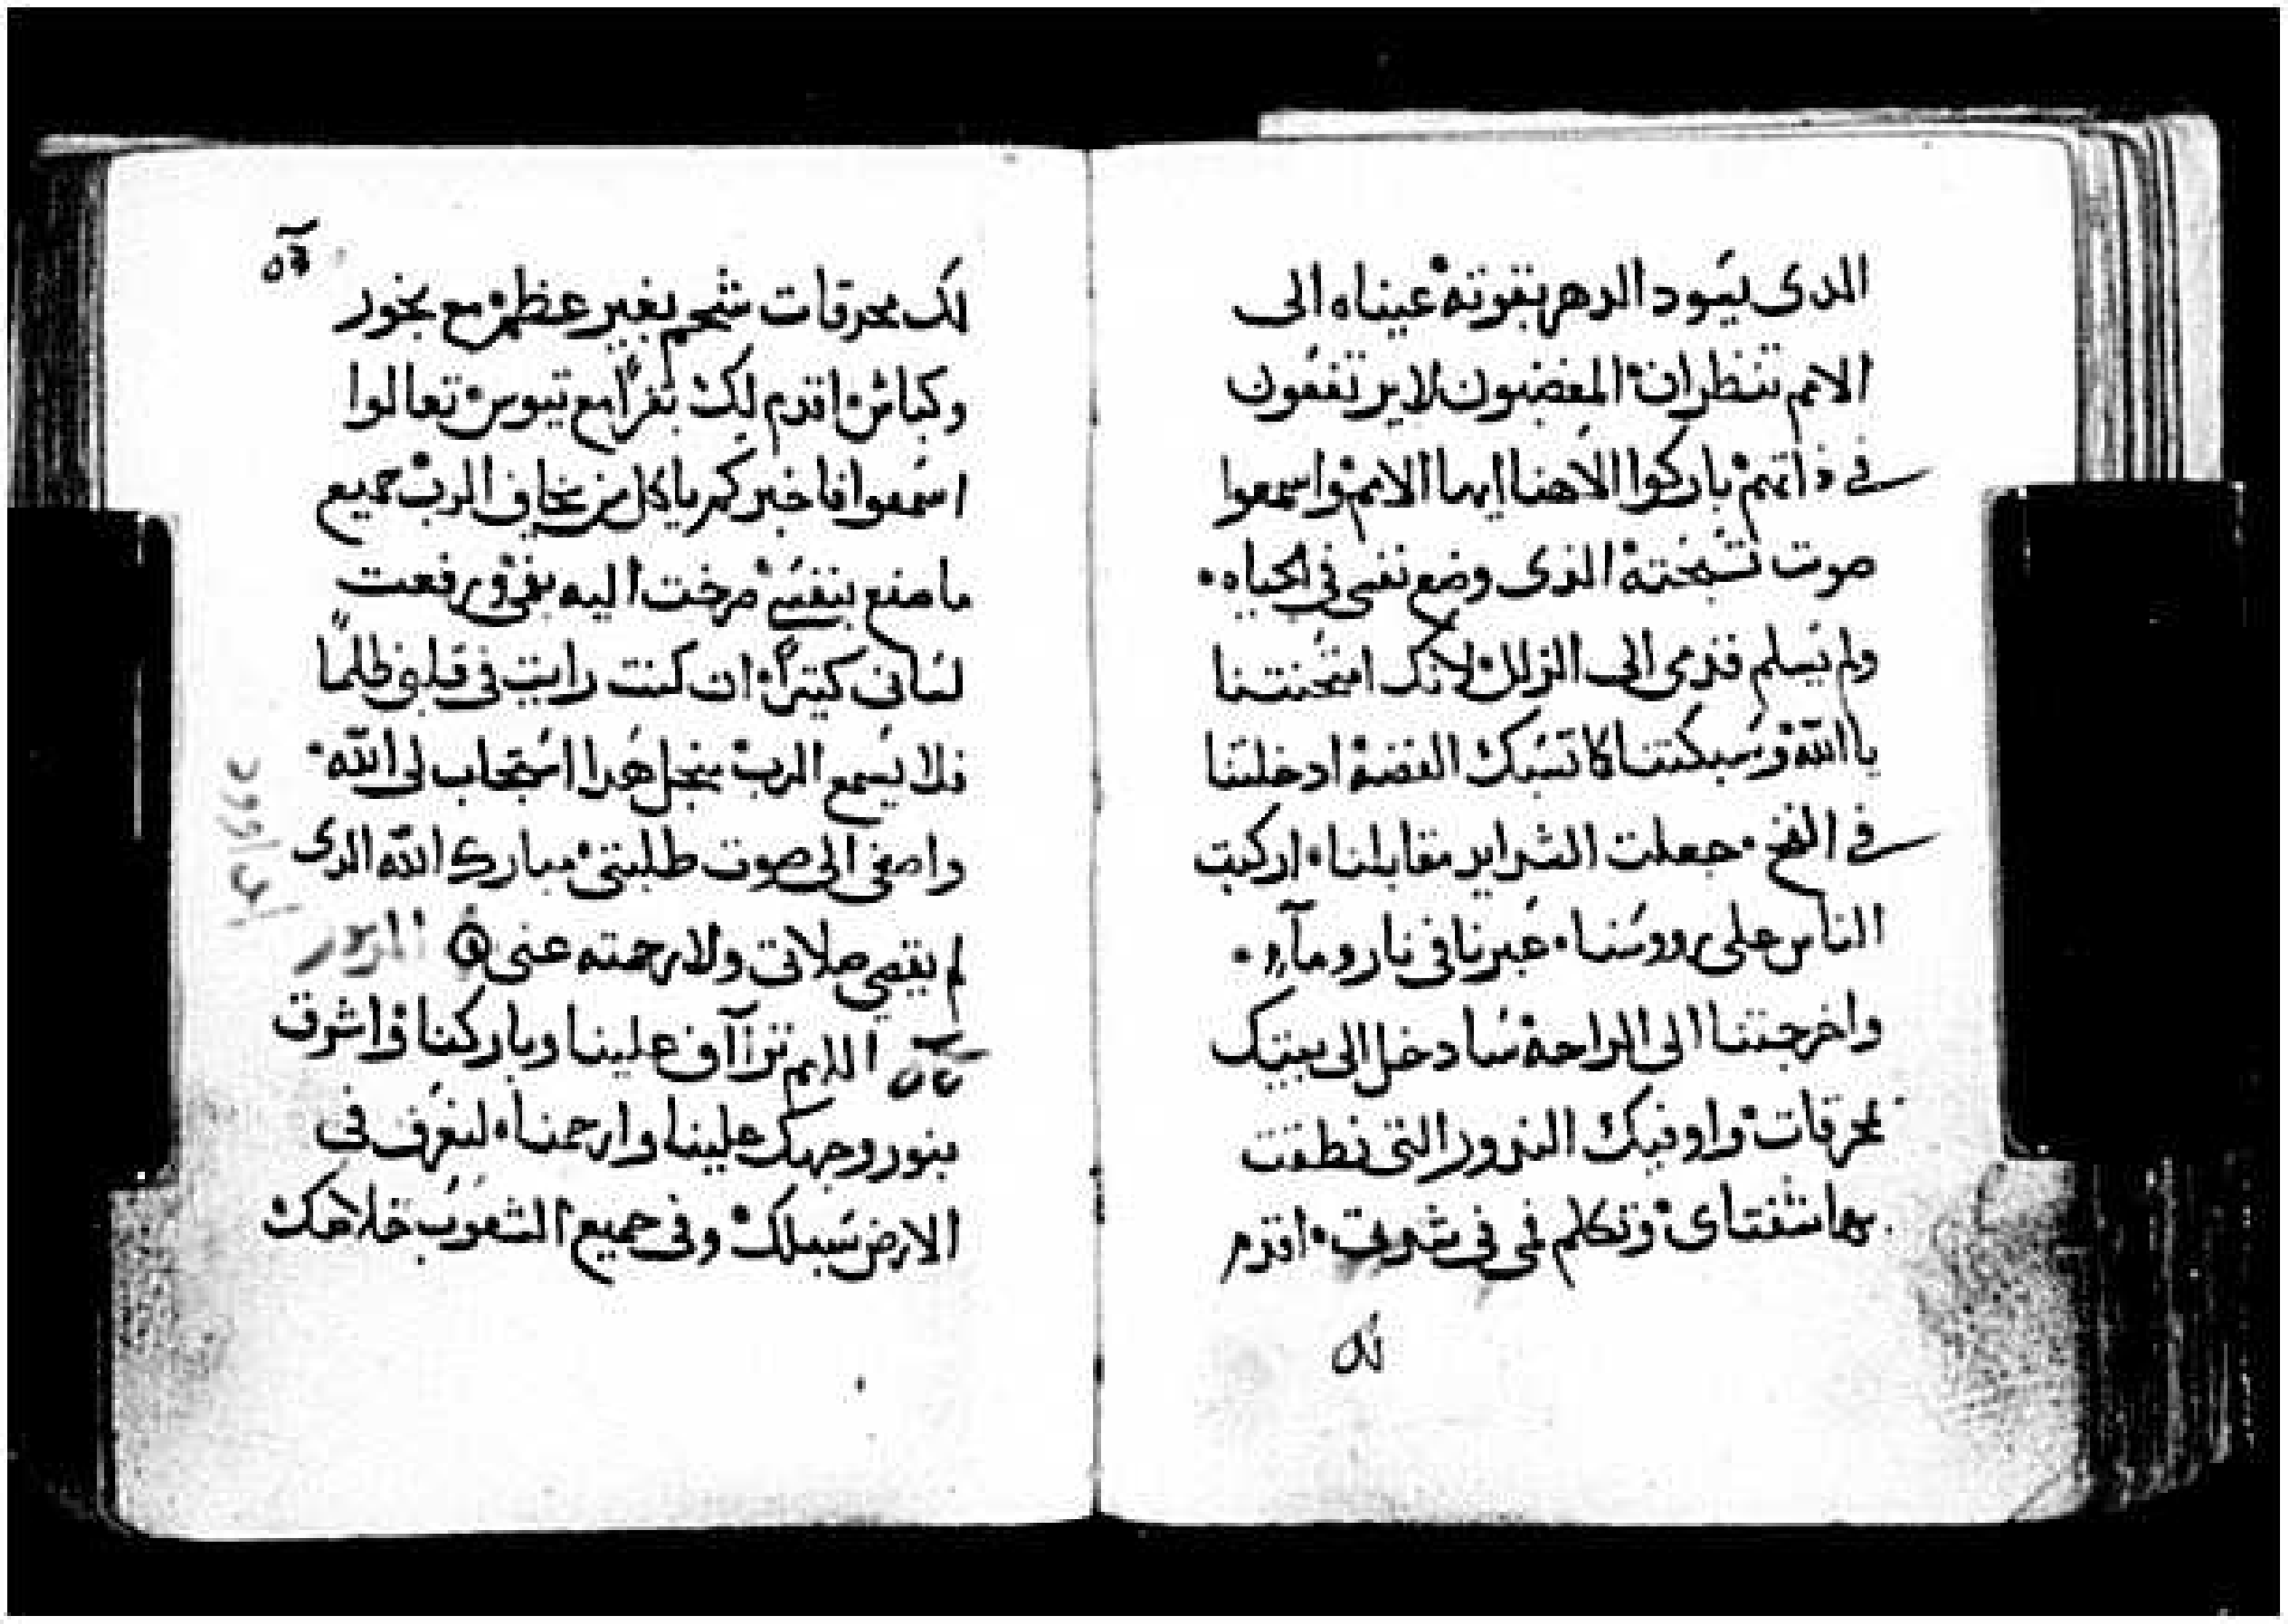 الدى يسود الدهر بقوته عيناه الى
الامم تنظران المغضبون لا يرتفعون
فى داتهم باركوا الاهنا ايها الامم واسمعوا
صوت تسبحته الذى وضع نفسى فى الحياه
ولم يسلم قدمى الى الزلل لانك امتحنتنا
يا الله وسبكتنا كما تسبك الفضه ادخلتنا
فى الفخ جعلت الشرايد مقابلنا اركبت
الناس على روسنا عبرنا فى نار ومآء
واخرجتنا الى الراحه سادخل الى بيتك
بمحرقات واوفيك الندور التى نطقت
بها شفتاى وتكلم فمى فى شدتى اقدم
لك محرقات شحم بغير عظم مع بخور
وكباش اقدم لك بقرا مع تيوس تعالوا
اسمعوا فاخبركم يا كل من يخاف الرب جميع
ما صنع بنفسى صرخت اليه بفمى ورفعت
لسانى كتيرا ان كنت رايت فى قلبى ظلما
فلا يسمع الرب من اجل هدا استجاب لى الله
واصغى الى صوت طلبتى مبارك الله الدى
لم يقصى صلاتى ولا رحمته عنى المزمور
اللهم ترآاف علينا وباركنا واشرق
بنور وجهك علينا وارحمنا لنعرف فى
الارض سبيلك وفى جميع الشعوب خلاصك